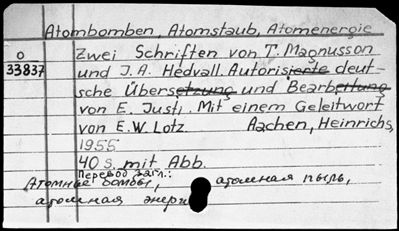 Atombomben, Atomstaub, Atomenergie
O
33837
Zwei Schriften von T. Magnusson
und J. A. Hedvall. Autorisierte deut-
sche Übersetzung und Bearbeitung
von E. Justi. Mit einem Geleitwort
von E. W. Lotz. Aachen, Heinrichs,
1955
40 S. mit Abb.
Перевод загл.:
Атомные бомбы, атомная пыль,
атомная энерги